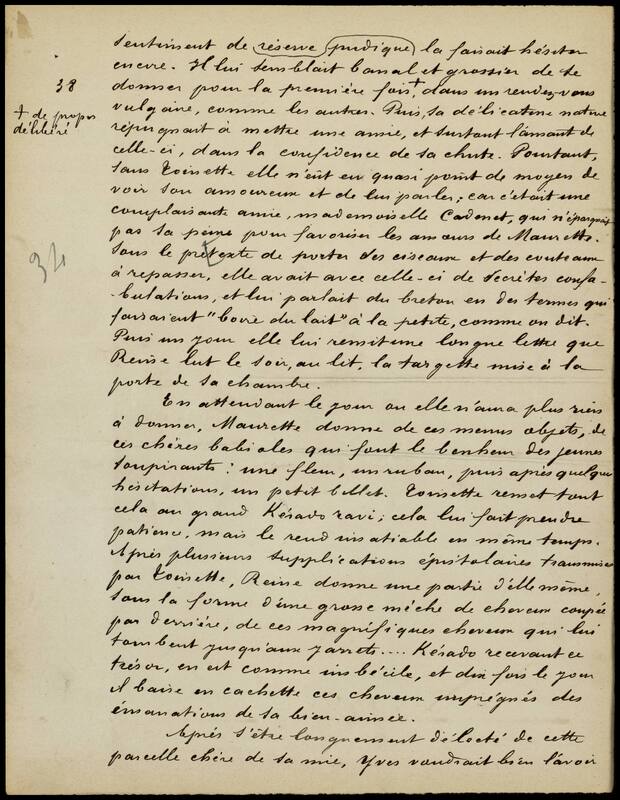 sentiment de réserve pudique la faisait hésiter
encore. Il lui semblait banal et grossier de se
38
donner pour la première fois + dans un rendez-vous
+ de propos
délibéré
vulgaire, comme les autres. Puis, sa délicate nature
répugnait à mettre une amie, et surtout l'amant de
celle-ci, dans la confidence de sa chute. Pourtant,
sans Toinette elle n'eût eu quasi point de moyen de
voir son amoureux et de lui parler; car c'était une
complaisante amie, mademoiselle Cadenet, qui n'épargnait
pas sa peine pour favoriser les amours de Maurette.
34
Sous le prétexte de porter des ciseaux et des couteaux
à repasser, elle avait avec celle-ci de secrètes confa-
-bulations, et lui parlait du breton en des termes qui
faisaient "boire du lait" à la petite, comme on dit.
Puis un jour elle lui remit une longue lettre que
Reine lut le soir, au lit, la targette mise à la
porte de sa chambre.
En attendant le jour où elle n'aura plus rien
à donner, Maurette donne de ces menus objets, de
ces chères babioles qui font le bonheur des jeunes
soupirants: une fleur, un ruban, puis après quelques
hésitations, un petit billet. Toinette remet tout
cela au grand Kérado ravi; cela lui fait prendre
patience, mais le rend insatiable en même temps.
Après plusieurs supplications épistolaires transmises
par Toinette, Reine donne une partie d'elle même,
sous la forme d'une grosse mèche de cheveux coupée
par derrière, de ces magnifiques cheveux qui lui
tombent jusqu'aux jarrets.... Kérado recevant ce
trésor, en est comme imbécile, et dix fois le jour
il baise en cachette ces cheveux imprégnés des
émanations de sa bien-aimée.
Après s'être longuement délecté de cette
parcelle chère de sa mie, Yves voudrait bien l'avoir